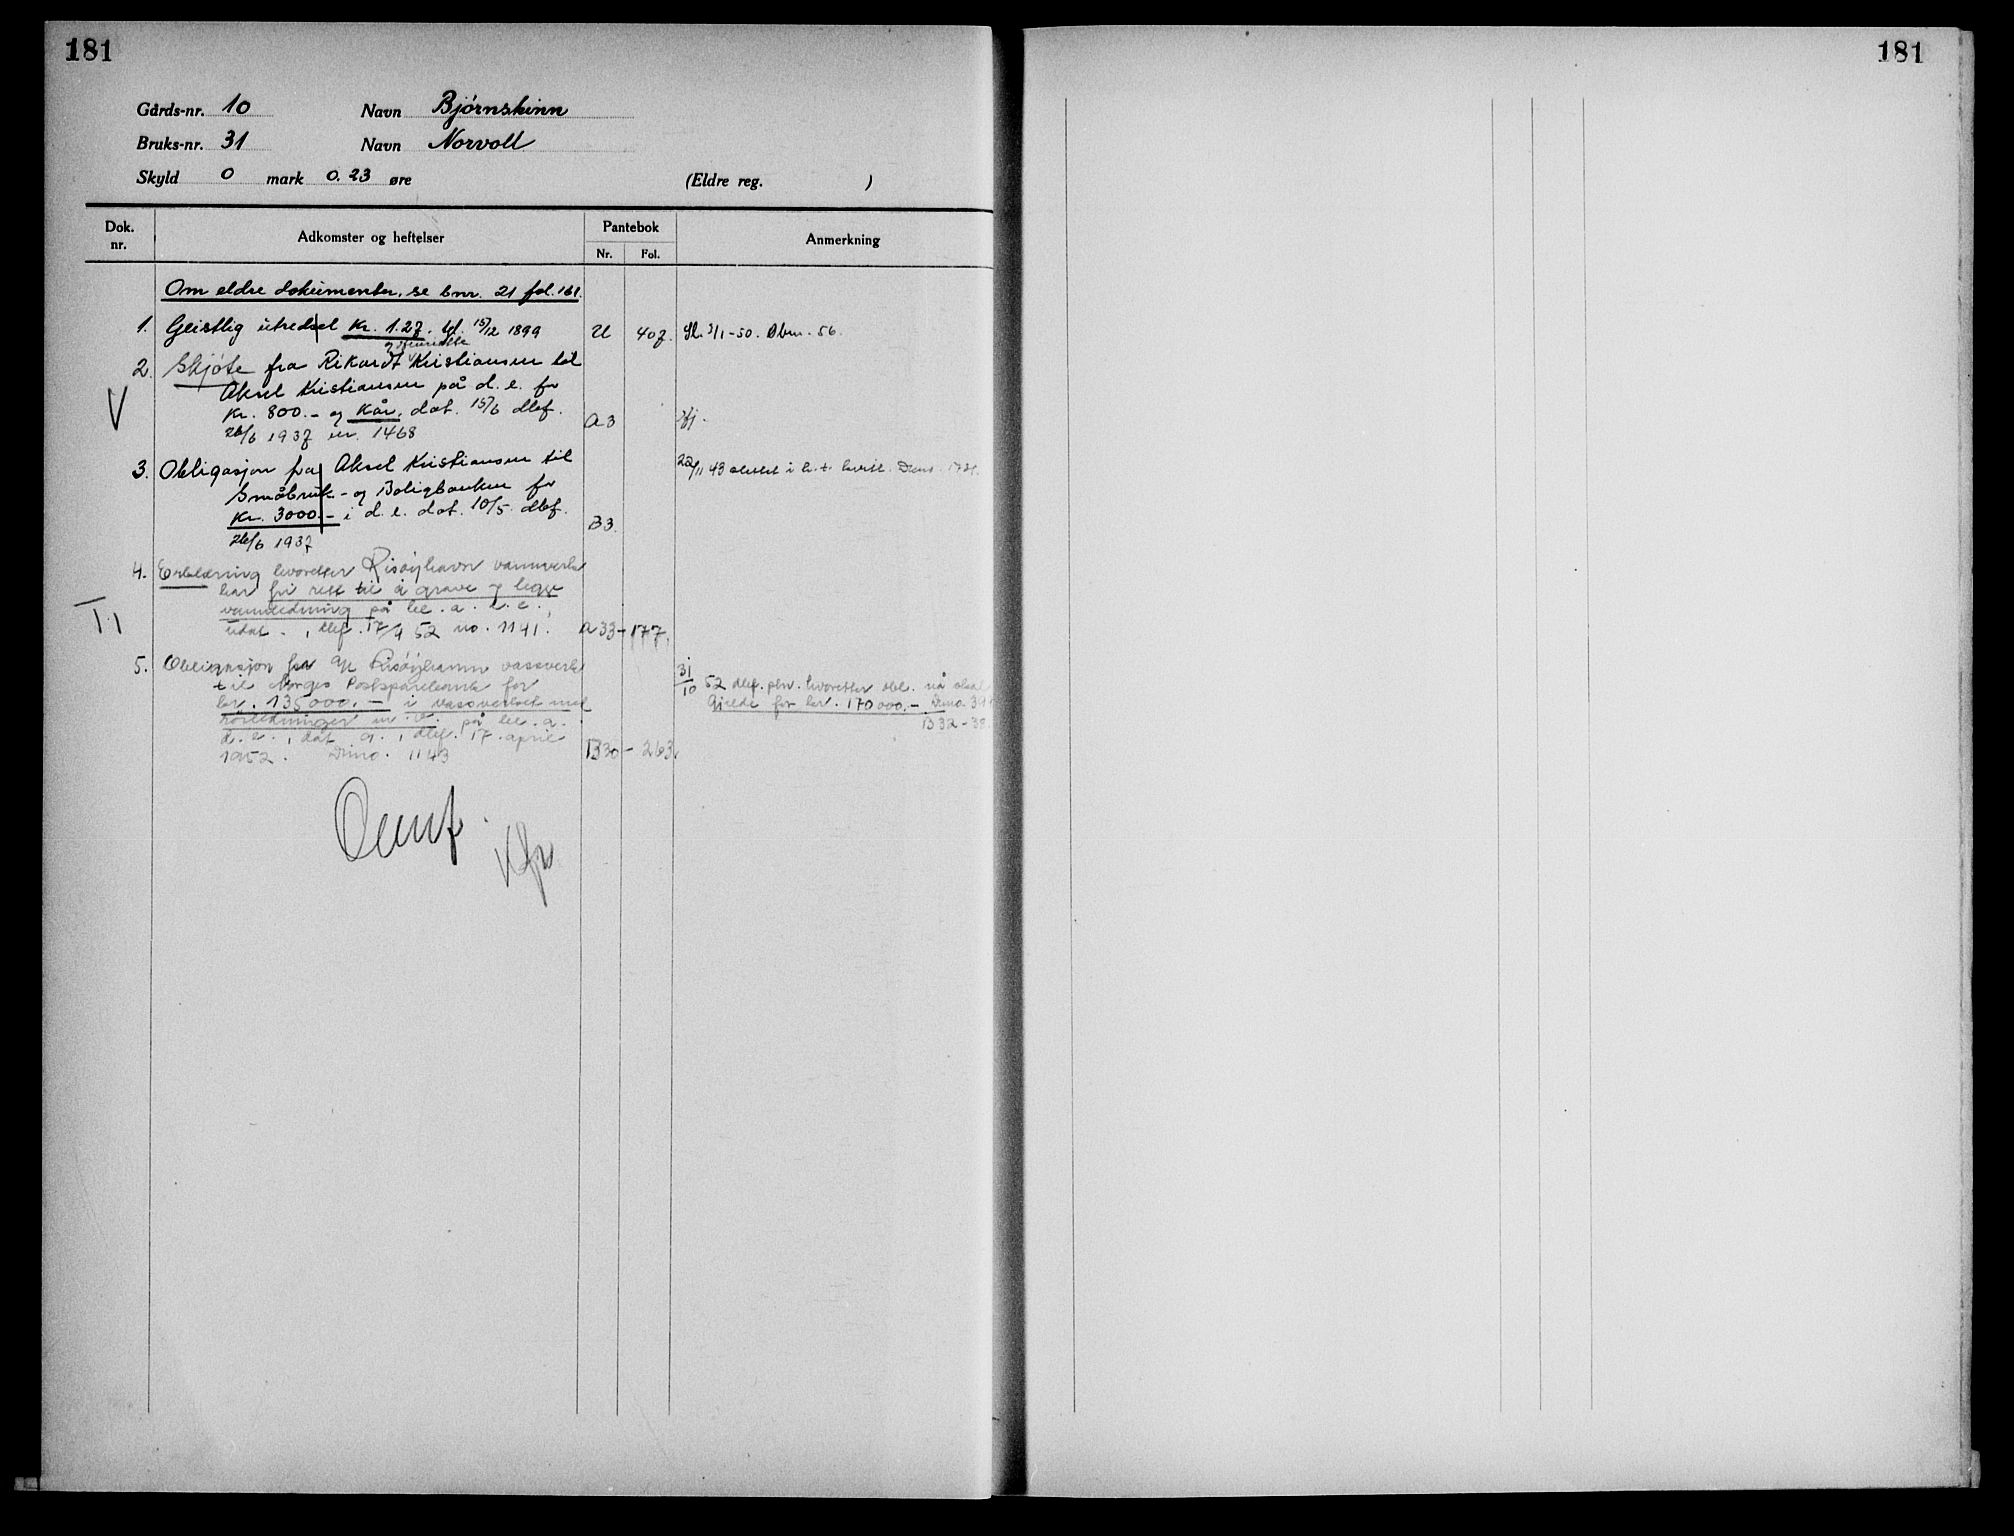 181
181
Gårds-nr. 10 Navn Bjørnskinn
Bruks-nr. 31 Navn Norvoll
Skyld 0 mark 0.23 øre (Eldre reg. )
Dok. nr. Adkomster og heftelser Pantebok Nr. Fol. Anmerkning
Om eldre dokumenter, se bnr. 21 fol. 161.
1. Geistlig utredsel kr. 1.27. tgl. 15/12 1899 U 407. Sl. 3/1-50. Dbnr. 56.
2. Skjøte fra Rikardt Kristiansen til
Aksel Kristiansen på d. e. for
kr. 800.- og Kår, dat. 15/6 dlef. A3
26/6 1937 nr. 1468
3. Obligasjon fra Aksel Kristiansen til 22/11 43 slettet i h. t. kvitt.
Småbruk- og Boligbanken for
Kr. 3000.- i d. e. dat. 10/5. dlef. B3.
26/6 1937
4. Erklæring hvoretter Risøyhavn vannverk
har fri rett til å grave og legge
vannledning på bl. a. d. e.,
udat., dlef. 17/4 52 no. 1141. A 33 - 177.
5. Obligasjon fra A/L Risøyhamn vassverk
til Norges Postsparebank for 31/10 52 dlef. pln. hvoretter obl. nå skal
kr. 135000.- i vassverket med gjelde for kr. 170000.-
rørledninger m. v. på bl. a. B 32 - 38.
d. e., dat. og dlef. 17. april
1952. Dno. 1143 B30 - 263.